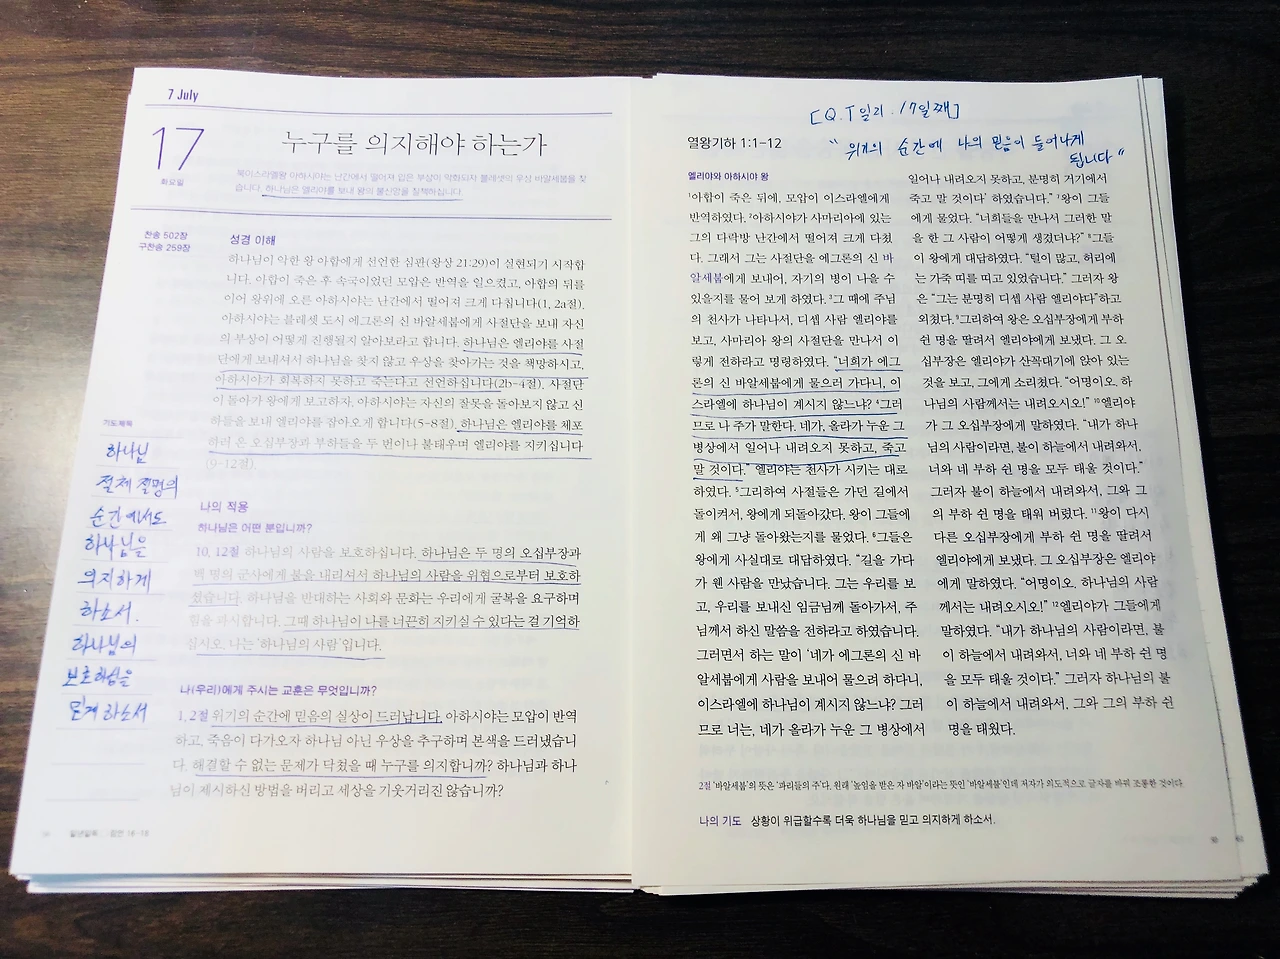 7 July
17
화요일
누구를 의지해야 하는가
북이스라엘왕 아하시야는 난간에서 떨어져 입은 부상이 악화되자 블레셋의 우상 바알세붑을 찾
습니다. 하나님은 엘리야를 보내 왕의 불신앙을 질책하십니다.
찬송 502장
구찬송 259장
성경 이해
하나님이 악한 왕 아합에게 선언한 심판(왕상 21:29)이 실현되기 시작합
니다. 아합이 죽은 후 속국이었던 모압은 반역을 일으켰고, 아합의 뒤를
이어 왕위에 오른 아하시야는 난간에서 떨어져 크게 다칩니다(1, 2a절).
아하시야는 블레셋 도시 에그론의 신 바알세붑에게 사절단을 보내 자신
의 부상이 어떻게 진행될지 알아보라고 합니다. 하나님은 엘리야를 사절
단에게 보내셔서 하나님을 찾지 않고 우상을 찾아가는 것을 책망하시고,
아하시야가 회복하지 못하고 죽는다고 선언하십니다(2b-4절). 사절단
이 돌아가 왕에게 보고하자, 아하시야는 자신의 잘못을 돌아보지 않고 신
하들을 보내 엘리야를 잡아오게 합니다(5-8절). 하나님은 엘리야를 체포
하러 온 오십부장과 부하들을 두 번이나 불태우며 엘리야를 지키십니다
(9-12절).
기도제목
하나님
절체 절명의
순간에서도
하나님을
의지하게
하소서.
하나님의
보호하심을
믿게 하소서
나의 적용
하나님은 어떤 분입니까?
10, 12절 하나님의 사람을 보호하십니다. 하나님은 두 명의 오십부장과
백 명의 군사에게 불을 내리셔서 하나님의 사람을 위협으로부터 보호하
셨습니다. 하나님을 반대하는 사회와 문화는 우리에게 굴복을 요구하며
힘을 과시합니다. 그때 하나님이 나를 너끈히 지키실 수 있다는 걸 기억하
십시오. 나는 '하나님의 사람'입니다.
나(우리)에게 주시는 교훈은 무엇입니까?
1, 2절 위기의 순간에 믿음의 실상이 드러납니다. 아하시야는 모압이 반역
하고, 죽음이 다가오자 하나님 아닌 우상을 추구하며 본색을 드러냈습니
다. 해결할 수 없는 문제가 닥쳤을 때 누구를 의지합니까? 하나님과 하나
님이 제시하신 방법을 버리고 세상을 기웃거리진 않습니까?
[Q.T일리. 17일째]
열왕기하 1:1-12
" 위기의 순간에 나의 믿음이 들어나게
됩니다 "
엘리야와 아하시야 왕
1아합이 죽은 뒤에, 모압이 이스라엘에게
반역하였다. 2아하시야가 사마리아에 있는
그의 다락방 난간에서 떨어져 크게 다쳤
다. 그래서 그는 사절단을 에그론의 신 바
알세붑에게 보내어, 자기의 병이 나을 수
있을지를 물어 보게 하였다. 3그 때에 주님
의 천사가 나타나서, 디셉 사람 엘리야를
보고, 사마리아 왕의 사절단을 만나서 이
렇게 전하라고 명령하였다. "너희가 에그
론의 신 바알세붑에게 물으러 가다니, 이
스라엘에 하나님이 계시지 않느냐? 4그러
므로 나 주가 말한다. 네가, 올라가 누운 그
병상에서 일어나 내려오지 못하고, 죽고
말 것이다." 엘리야는 천사가 시키는 대로
하였다. 5그리하여 사절들은 가던 길에서
돌이켜서, 왕에게 되돌아갔다. 왕이 그들에
게 왜 그냥 돌아왔는지를 물었다. 6그들은
왕에게 사실대로 대답하였다. "길을 가다
가 웬 사람을 만났습니다. 그는 우리를 보
고, 우리를 보내신 임금님께 돌아가서, 주
님께서 하신 말씀을 전하라고 하였습니다.
그러면서 하는 말이 '네가 에그론의 신 바
알세붑에게 사람을 보내어 물으려 하다니,
이스라엘에 하나님이 계시지 않느냐? 그러
므로 너는, 네가 올라가 누운 그 병상에서
일어나 내려오지 못하고, 분명히 거기에서
죽고 말 것이다' 하였습니다." 7왕이 그들
에게 물었다. "너희들을 만나서 그러한 말
을 한 그 사람이 어떻게 생겼더냐?" 8그들
이 왕에게 대답하였다. "털이 많고, 허리에
는 가죽 띠를 띠고 있었습니다." 그러자 왕
은 "그는 분명히 디셉 사람 엘리야다"하고
외쳤다. 9그리하여 왕은 오십부장에게 부하
쉰 명을 딸려서 엘리야에게 보냈다. 그 오
십부장은 엘리야가 산꼭대기에 앉아 있는
것을 보고, 그에게 소리쳤다. "어명이오. 하
나님의 사람께서는 내려오시오!" 10엘리야
가 그 오십부장에게 말하였다. "내가 하나
님의 사람이라면, 불이 하늘에서 내려와서,
너와 네 부하 쉰 명을 모두 태울 것이다."
그러자 불이 하늘에서 내려와서, 그와 그
의 부하 쉰 명을 태워 버렸다. 11왕이 다시
다른 오십부장에게 부하 쉰 명을 딸려서
엘리야에게 보냈다. 그 오십부장은 엘리야
에게 말하였다. "어명이오. 하나님의 사람
께서는 내려오시오!" 12엘리야가 그들에게
말하였다. "내가 하나님의 사람이라면, 불
이 하늘에서 내려와서, 너와 네 부하 쉰 명
을 모두 태울 것이다." 그러자 하나님의 불
이 하늘에서 내려와서, 그와 그의 부하 쉰
명을 태웠다.
2절 '바알세붑'의 뜻은 '파리들의 주'다. 원래 '높임을 받은 자 바알'이라는 뜻인 '바알세불'인데 저자가 의도적으로 글자를 바꿔 조롱한 것이다
나의 기도 상황이 위급할수록 더욱 하나님을 믿고 의지하게 하소서.